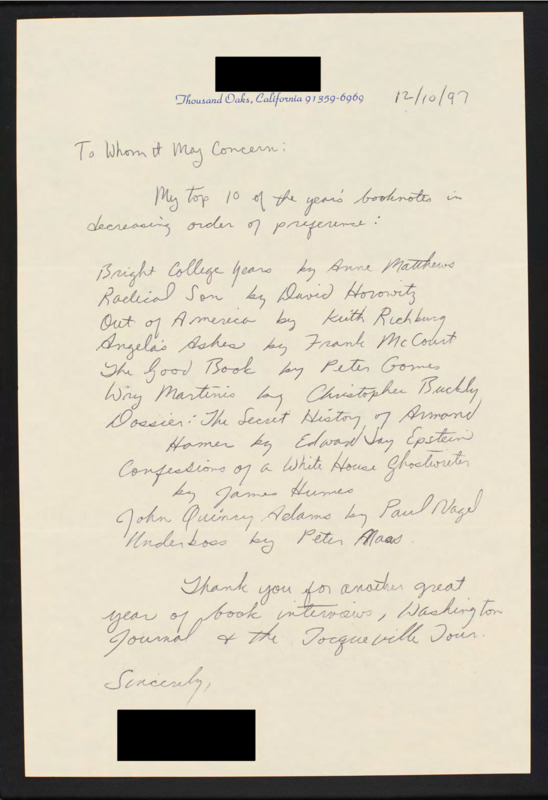 Thousand Oaks, California 91359-6969
12/10/97
To Whom it May Concern:
My top 10 of the year's booknotes in
decreasing order of preference:
Bright College Years by Anne Matthews
Radical Son by David Horowitz
Out of America by Keith Richburg
Angela's Ashes by Frank McCourt
The Good Book by Peter Gomes
Wry Martinis by Christopher Buckly
Dossier: The Secret History of Armand
Hamer by Edward Jay Epstein
Confessions of a White House Ghostwriter
by James Humes
John Quincy Adams by Paul Nagel
Underboss by Peter Maas.
Thank you for another great
year of book interviews, Washington
Journal & the Tocqueville Tour.
Sincerely,